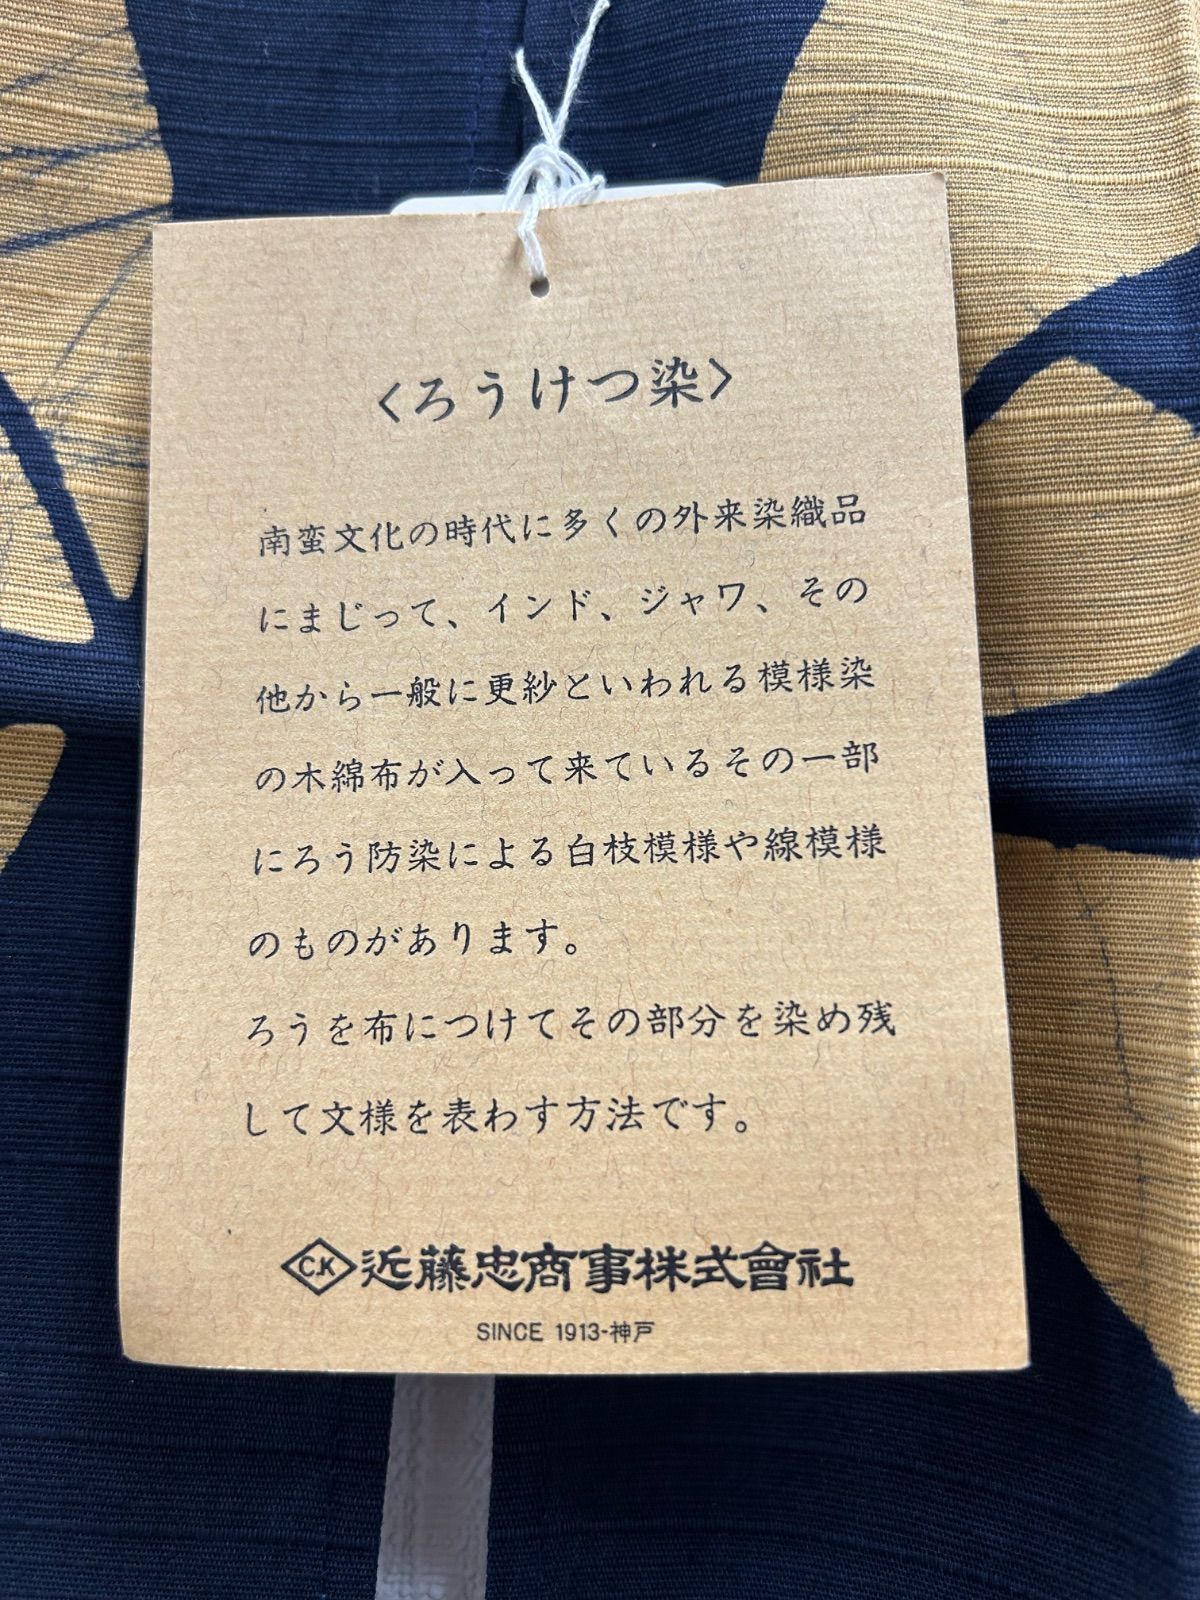 〈ろうけつ染〉
南蛮文化の時代に多くの外来染織品
にまじって、インド、ジャワ、その
他から一般に更紗といわれる模様染
の木綿布が入って来ているその一部
にろう防染による白枝模様や線模様
のものがあります。
ろうを布につけてその部分を染め残
して文様を表わす方法です。
C.K 近藤忠商事株式會社
SINCE 1913-神戸